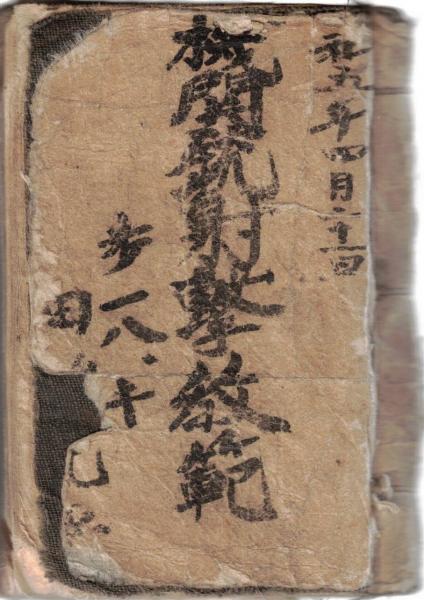 和五年四月二十一日
機関銃射撃教範
歩一八、十
田